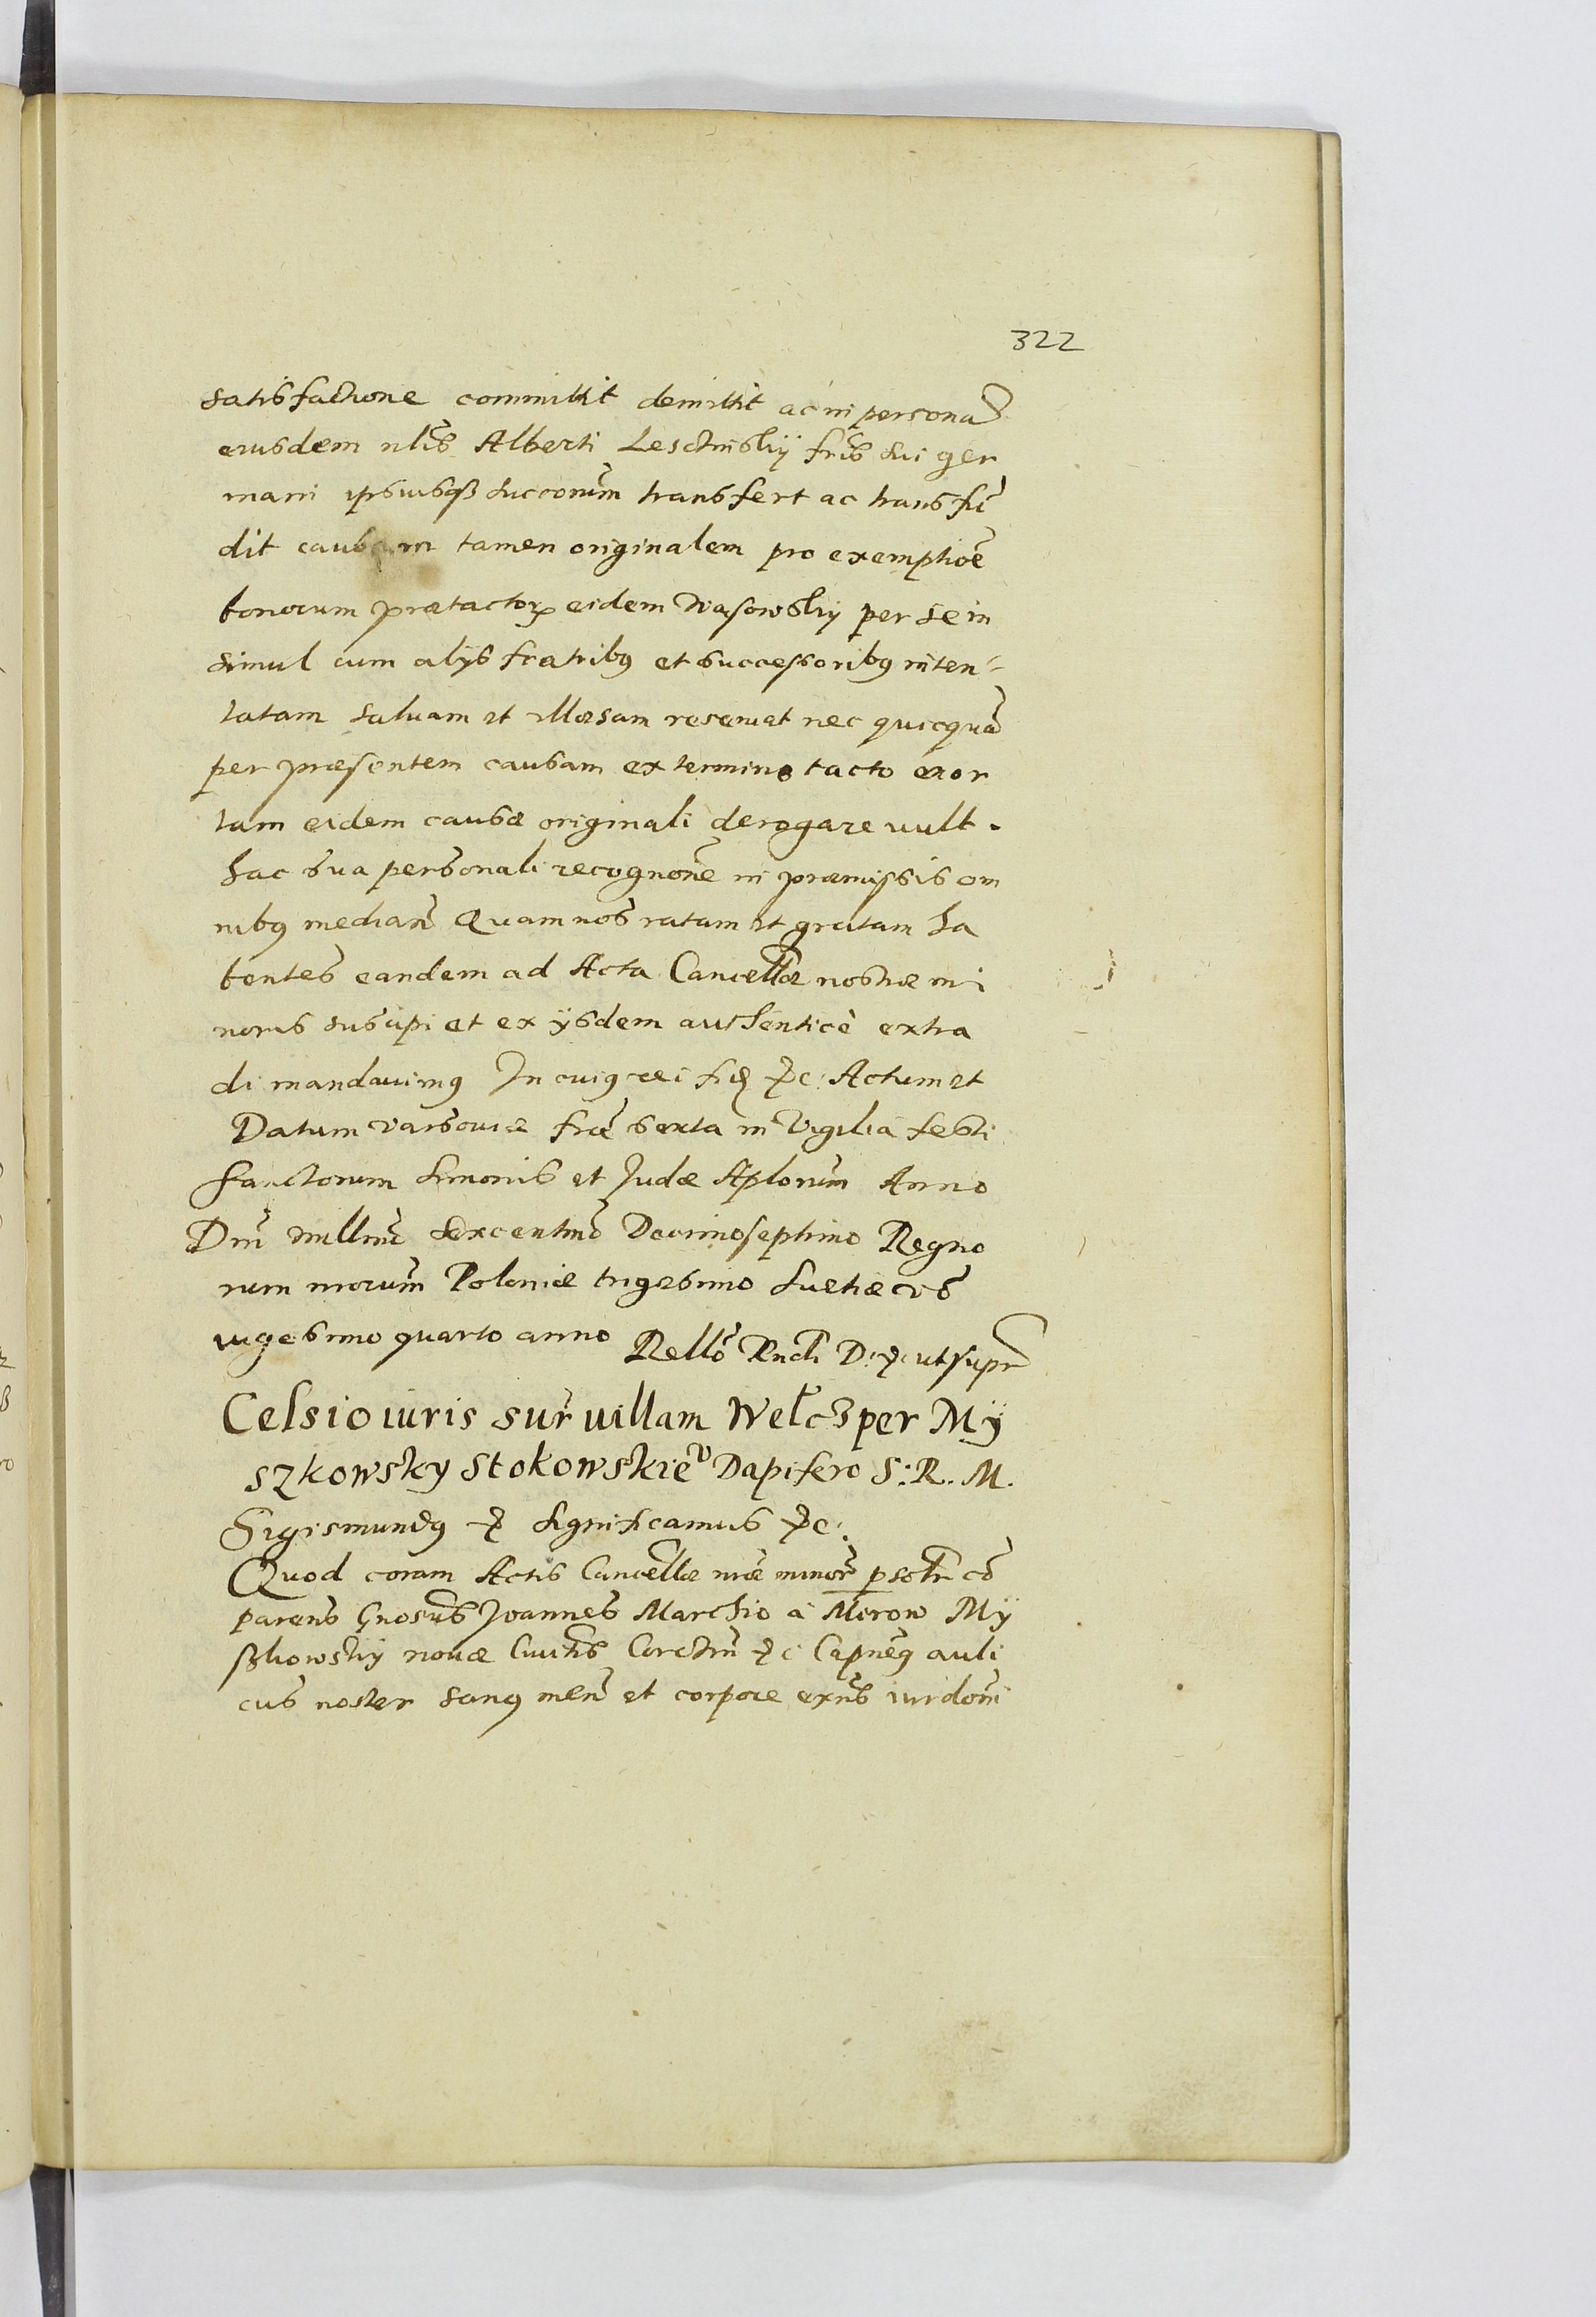 322
satisfactione committit demittit ac in persona
eiusdem nlis Alberti Lesctinskÿ fris sui ger
mani ipsiusq succorum transfert ac transfu
dit causam tamen originalem pro exemptioe
bonorum praetactor eidem Wasowskÿ per se in
simul cum alÿs fratribus et successoribus inten-
tatam saluam et illaesam reseruat nec quicqua
per praesentem causam ex termino tacto exor
tam eidem causae originali derogare vult.
hac sua personali recognone in praemissis om
nibus median Quam nos ratam et gratam ha
bentes eandem ad Acta Cancellae nostrae mi
noris suscipi et ex ÿsdem authenticè extra
di mandauimus In cuius rei fid etc: Actum et
Datum Varsouiae fra sexta in Vigilia festi
Sanctorum Simonis et Judae Aplorum Anno
Dni millmo sexcentmo Decimoseptimo Regno
rum nrorum Poloniae trigesimo Suetiae vo
uigesimo quarto anno Rello Rndi D: etc ut supr
Celsio iuris sur uillam Welcz per Mÿ
szkowsky Stokowskieo Dapifero S: R. M.
Sigismundus etc significamus etc:
Quod coram Actis Cancellae nrae minor psolr co
parens Gnosus Joannes Marchio à Mirow Mÿ
szkowskÿ nouae Ciuitis Corctin etc Capneus auli
cus noster sanus men et corpore exns iurdoni